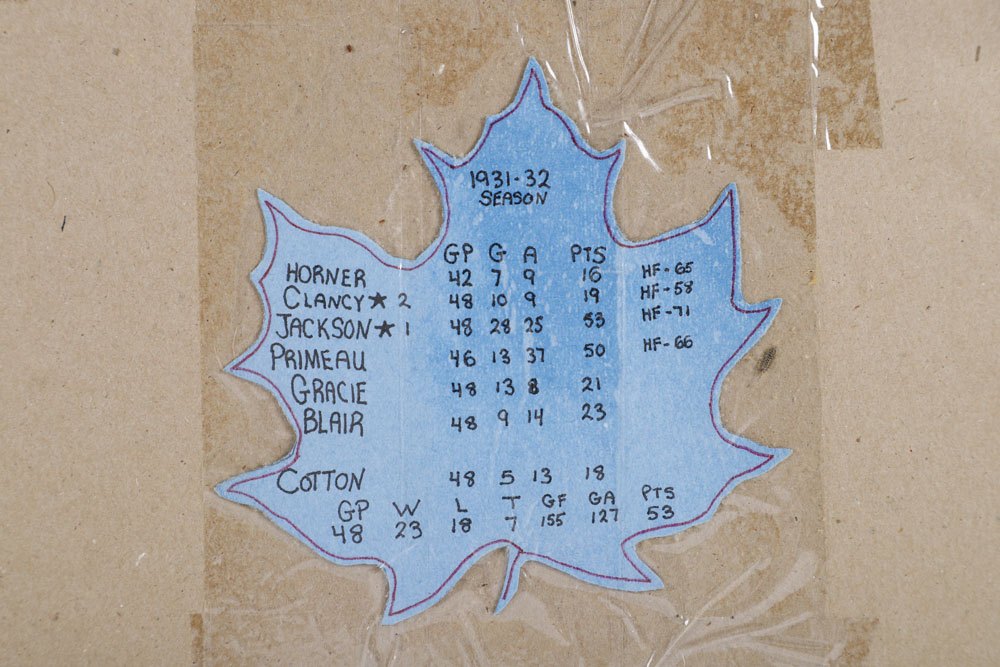 1931-32
SEASON
GP G A PTS
HORNER 42 7 9 16 HF-65
CLANCY★ 2 48 10 9 19 HF-58
JACKSON★ 1 48 28 25 53 HF-71
PRIMEAU 46 13 37 50 HF-66
GRACIE 48 13 8 21
BLAIR 48 9 14 23
COTTON 48 5 13 18
GP W L T GF GA PTS
48 23 18 7 155 127 53